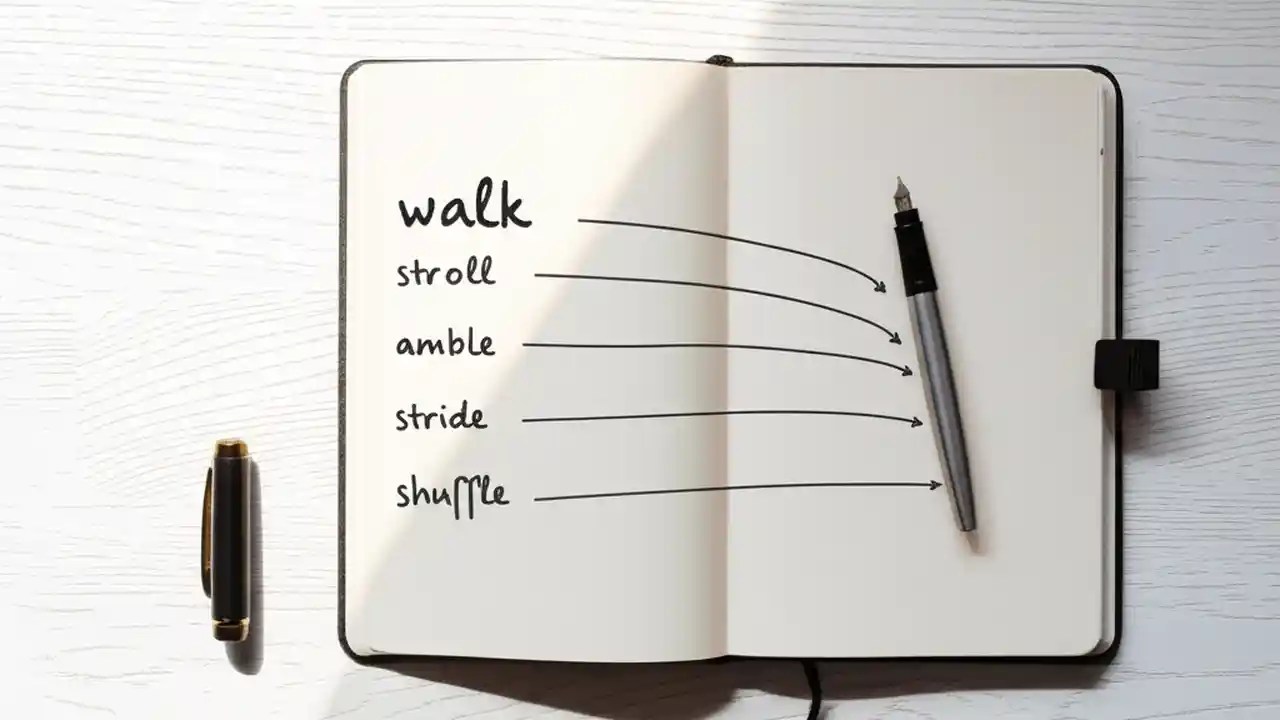 walk
stroll
amble
stride
shuffle